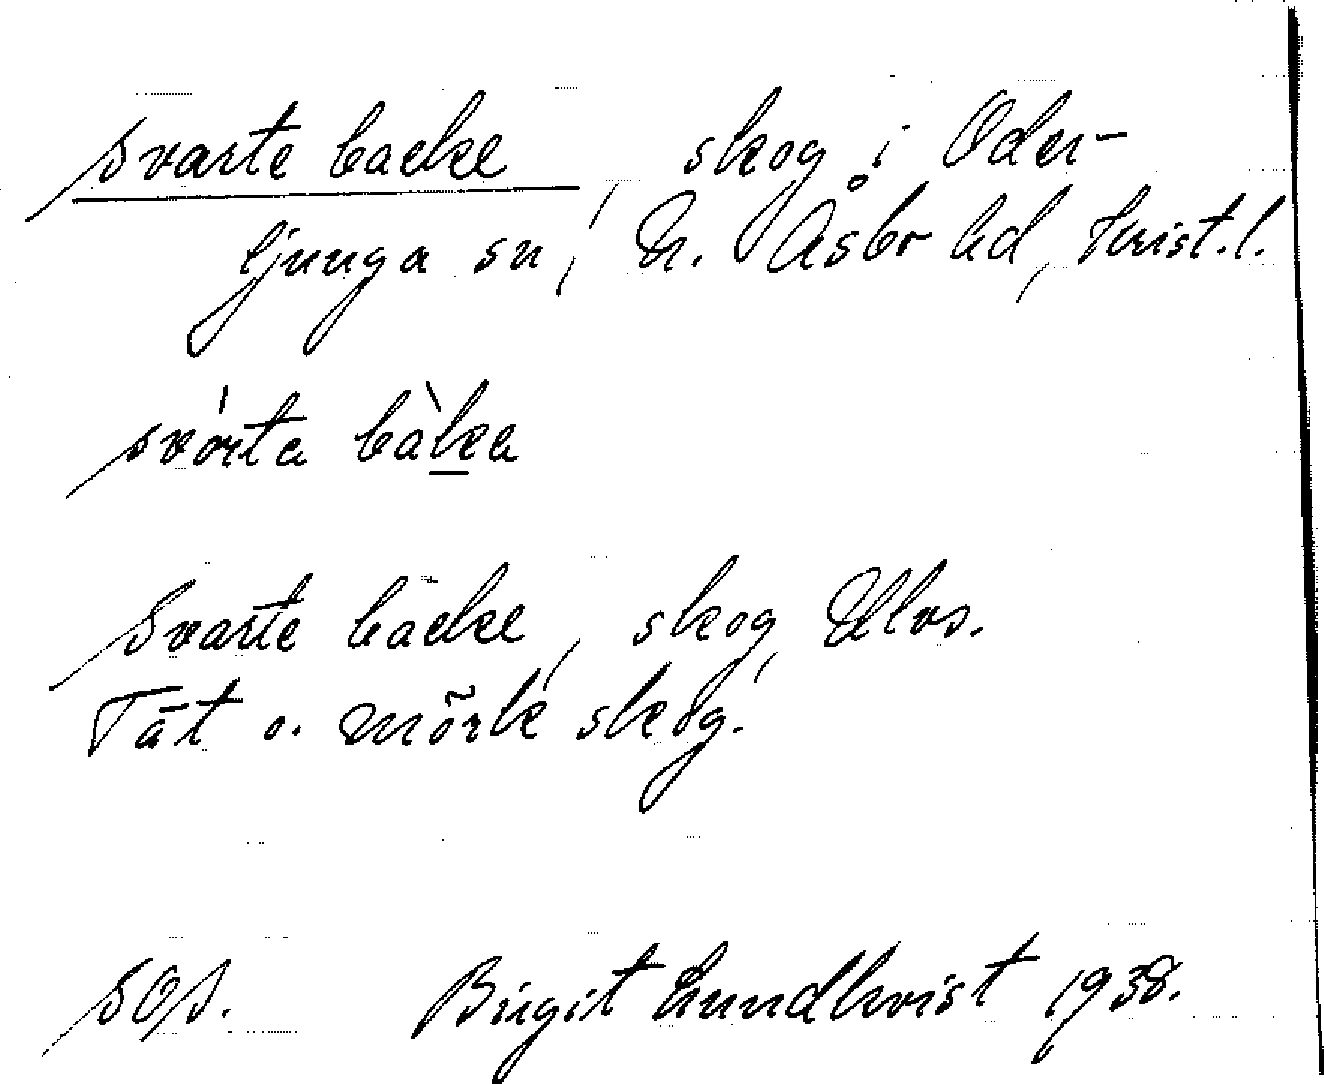 Svarte backe, skog i Öder-
ljunga sn, N. Åsbo hd, Krist.l.
svàrta bàka
Svarte backe, skog, Ulvs.
Tät o. mörk skog.
SOA. Birgit Lundkvist 1938.